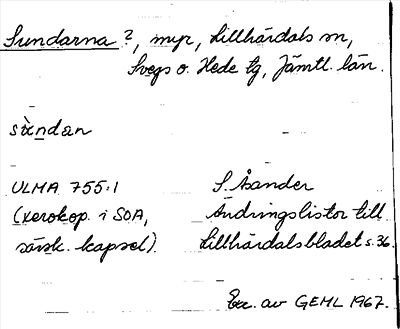 Sundarna ?, myr, Lillhärdals sn,
Svegs o. Hede tg, Jämtl. län.
sùndan
ULMA 755:1 S. Åsander
(xerokop. i SOA, Ändringslistor till
särsk. kapsel). Lillhärdalsbladet s. 36.
Exc. av GEML 1967.